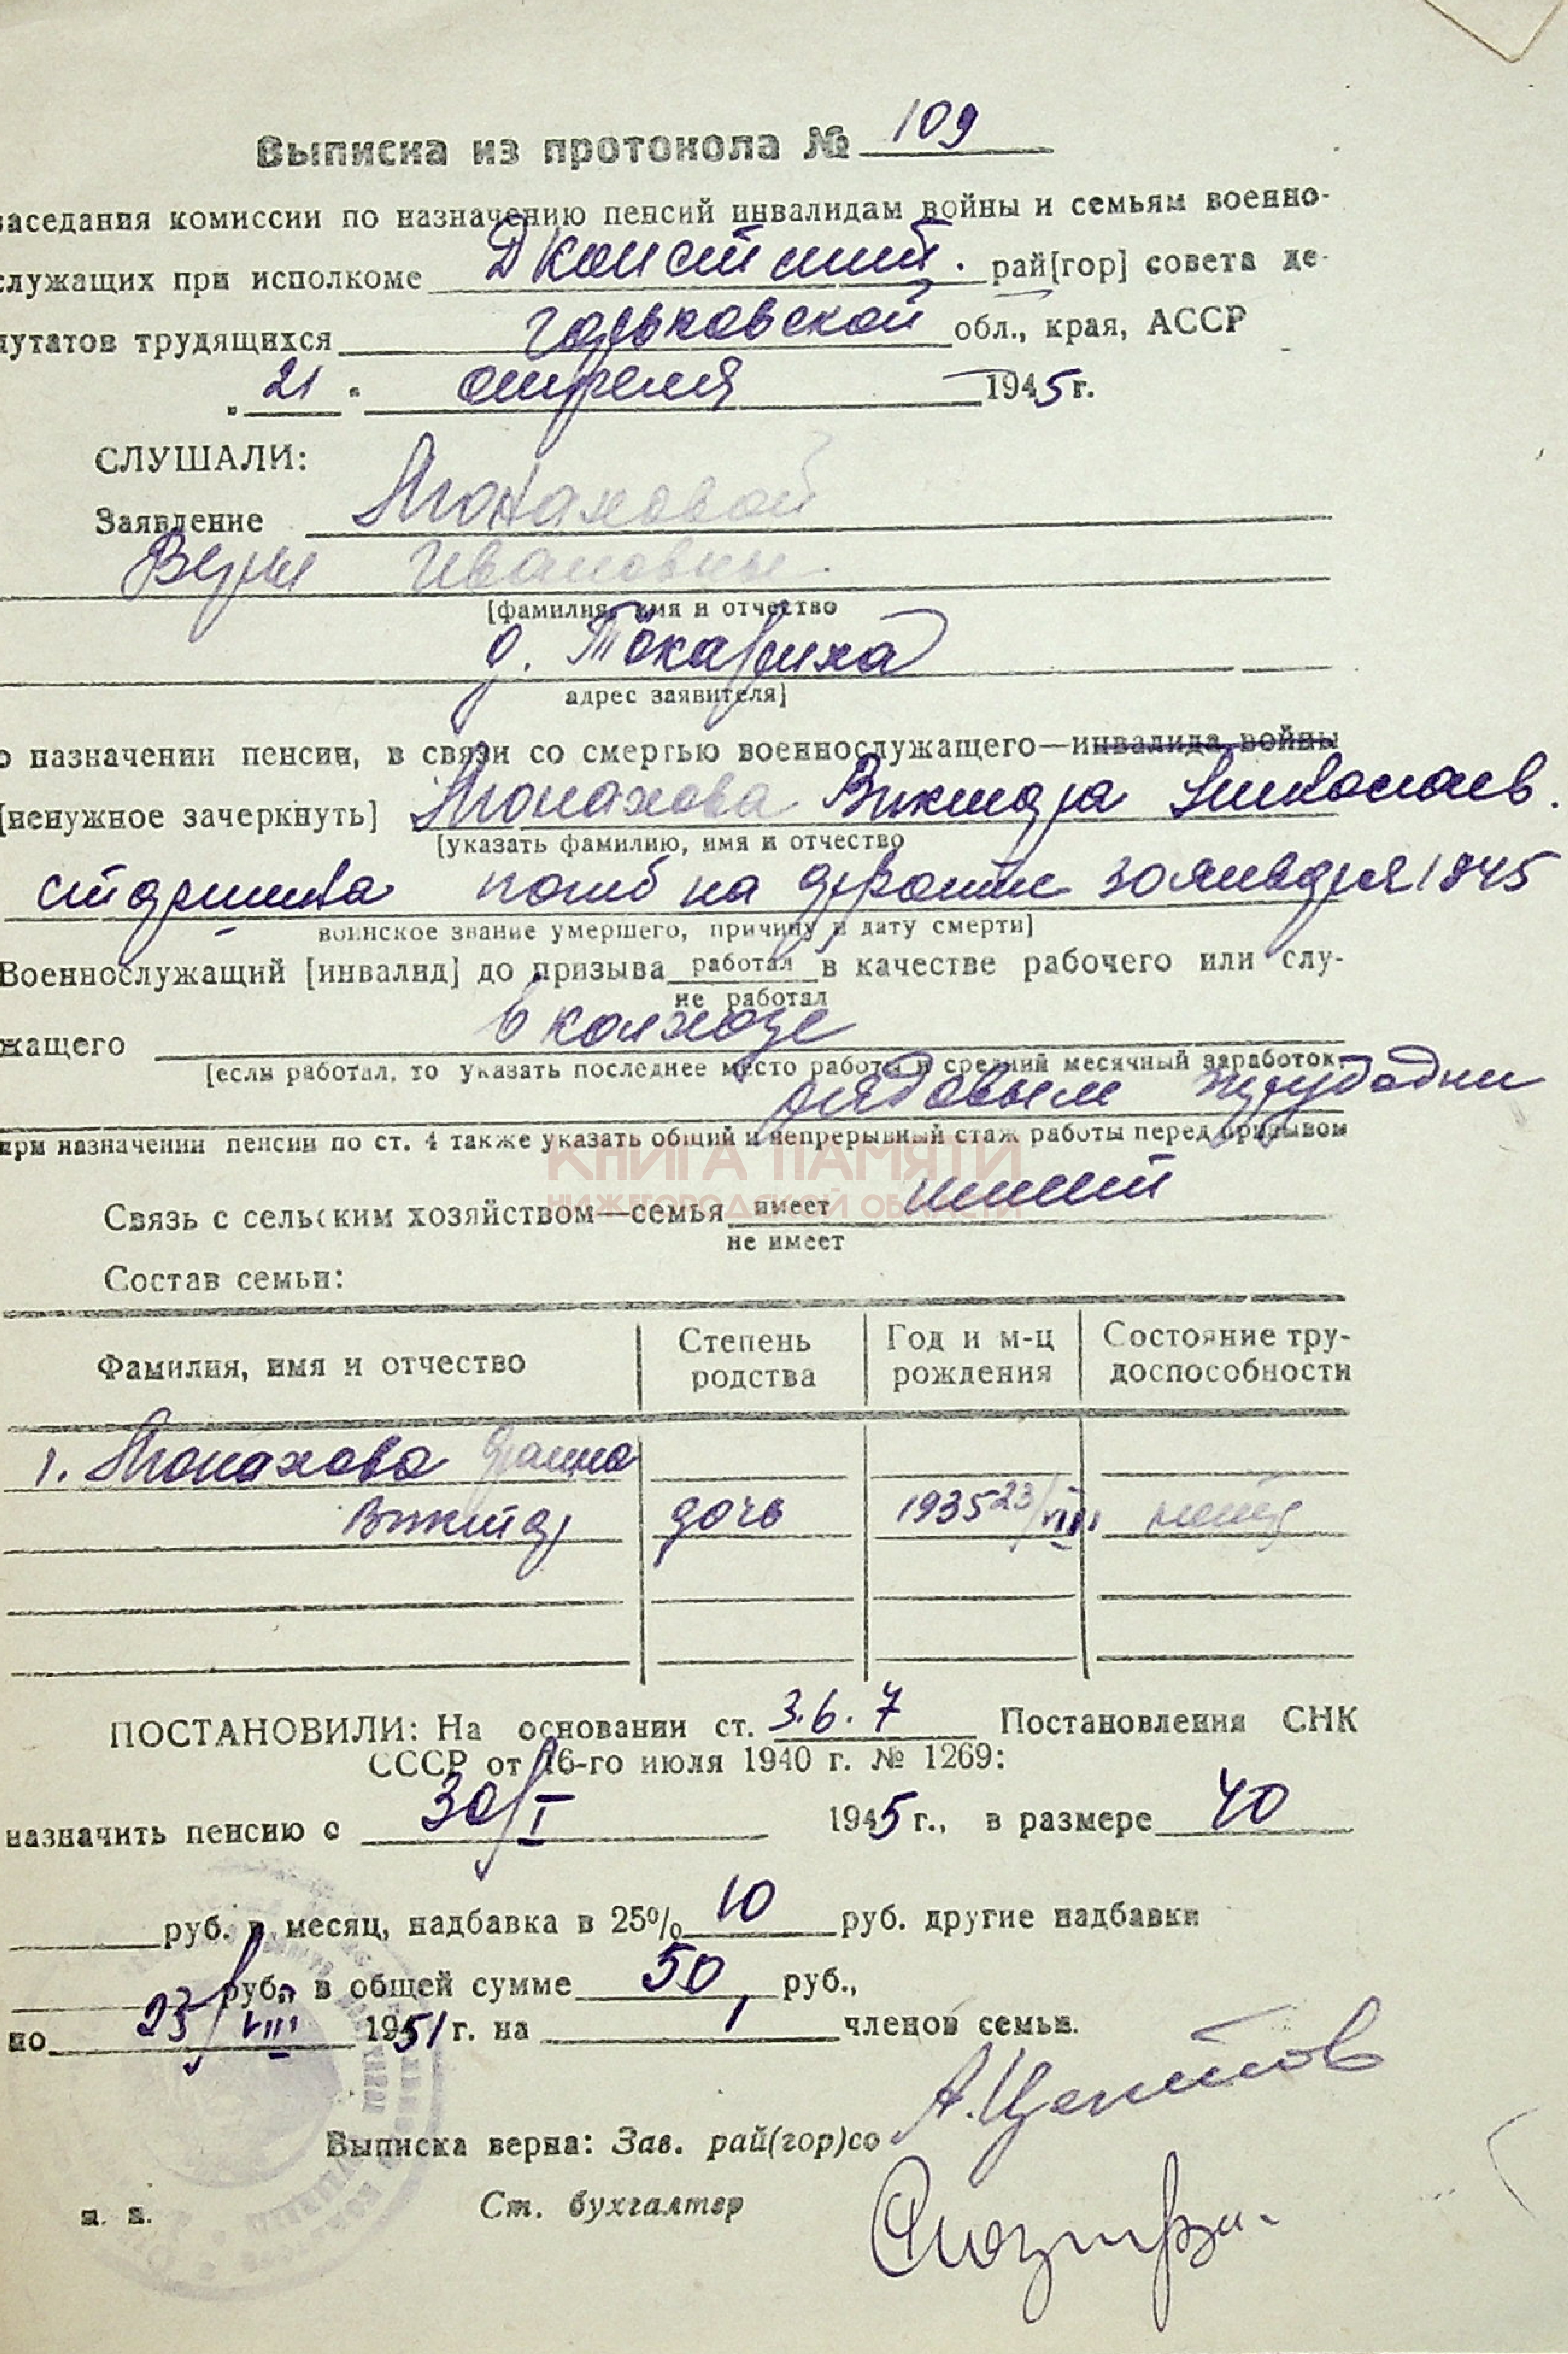 Выписка из протокола № 109
заседания комиссии по назначению пенсий инвалидам войны и семьям военно-
служащих при исполкоме Дконстинт. рай[гор] совета де-
путатов трудящихся горьковской обл., края, АССР
"21" апреля 1945 г.
СЛУШАЛИ:
Заявление Монаховой
Веры Ивановны
[фамилия, имя и отчество
д. Токариха
адрес заявителя]
о назначении пенсии, в связи со смертью военнослужащего—инвалида войны
[ненужное зачеркнуть] Монахова Виктора Николаев.
[указать фамилию, имя и отчество
старшина погиб на фронте 30 января 1945
воинское звание умершего, причину и дату смерти]
Военнослужащий [инвалид] до призыва работал в качестве рабочего или слу-
не работал
жащего в колхозе
[если работал, то указать последнее место работы и средний месячный заработок.
рядовым трудодни
при назначении пенсии по ст. 4 также указать общий и непрерывный стаж работы перед призывом
КНИГА ПАМЯТИ
НИЖЕГОРОДСКОЙ ОБЛАСТИ
Связь с сельским хозяйством—семья имеет имеет
не имеет
Состав семьи:
Фамилия, имя и отчество Степень родства Год и м-ц рождения Состояние тру-доспособности
1. Монахова
Виктор дочь 1935 23/VIII
ПОСТАНОВИЛИ: На основании ст. 3.6.7 Постановления СНК
СССР от 16-го июля 1940 г. № 1269:
назначить пенсию с 30/I 1945 г., в размере 40
руб. в месяц, надбавка в 25% 10 руб. другие надбавки
руб. в общей сумме 50 руб.,
по 23/VIII 1951 г. на 1 членов семьи.
Выписка верна: Зав. рай(гор)со
м. п. Ст. бухгалтер